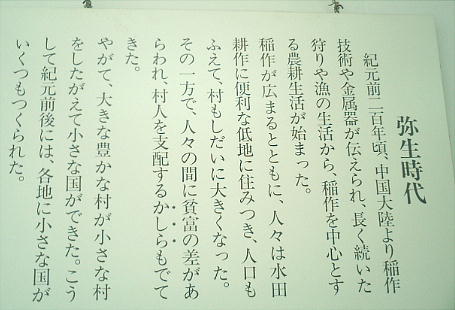 弥生時代
紀元前二百年頃、中国大陸より稲作
技術や金属器が伝えられ、長く続いた
狩りや漁の生活から、稲作を中心とす
る農耕生活が始まった。
稲作が広まるとともに、人々は水田
耕作に便利な低地に住みつき、人口も
ふえて、村もしだいに大きくなった。
その一方で、人々の間に貧富の差があ
らわれ、村人を支配するかしらもでて
きた。
やがて、大きな豊かな村が小さな村
をしたがえて小さな国ができた。こう
して紀元前後には、各地に小さな国が
いくつもつくられた。